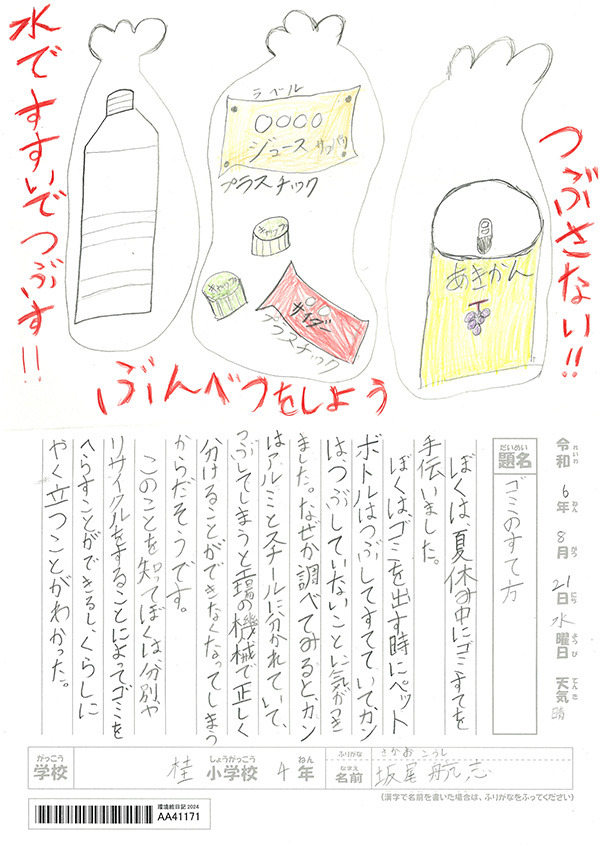 水ですすいでつぶす!!
ラベル
○○○○
ジュース サッパリ
プラスチック
キャップ
キャップ
サイダー
プラスチック
つぶさない!!
あきかん
ぶんべつをしよう
令和 6年 8月 21日 水曜日 天気 晴
れいわ ねん がつ にち ようび てんき
だいめい
題名
ゴミのすて方
ぼくは、夏休み中にゴミすてを
手伝いました。
ぼくは、ゴミを出す時にペット
ボトルはつぶしてすてていて、カン
はつぶしていないことに気がつき
ました。なぜか調べてみると、カン
はアルミとスチールに分かれていて、
つぶしてしまうと工場の機械で正しく
分けることができなくなってしまう
からだそうです。
このことを知ってぼくは分別や
リサイクルをすることによってゴミを
へらすことができるし、くらしに
やく立つことがわかった。
がっこう しょうがっこう ねん
学校 桂 小学校 4年
ふりがな さかお こうし
なまえ
名前 坂尾 航志
(漢字で名前を書いた場合は、ふりがなをふってください)
環境絵日記2024
AA41171